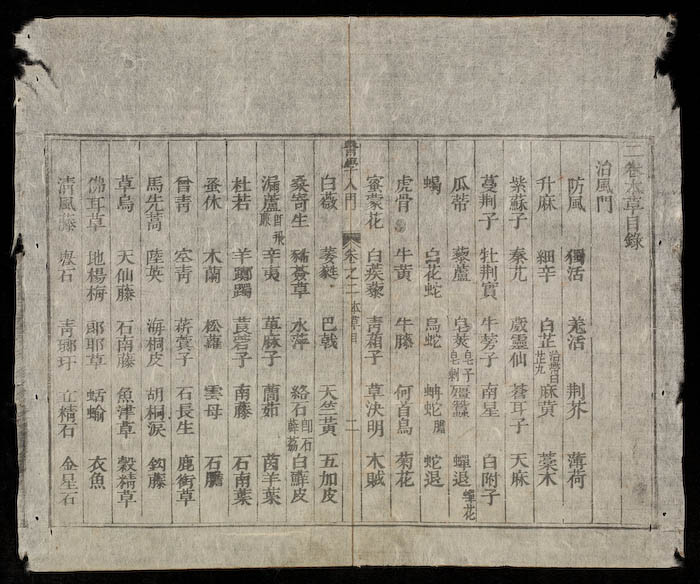 二卷本草目錄
治風門
防風 獨活 羌活 荆芥 薄荷
升麻 細辛 白芷 治勞目芷丸 麻黄 藁本
紫蘇子 秦艽 威靈仙 蒼耳子 天麻
蔓荆子 牡荆實 牛蒡子 南星 白附子
瓜蔕 藜蘆 皂莢 皂子皂刺 殭蠶 蟬退 蟬花
蝎 白花蛇 烏蛇 蚺蛇膽 蛇退
虎骨 牛黄 牛膝 何首烏 菊花
蜜蒙花 白蒺藜 青葙子 草決明 木賊
醫學入門 卷之二 本草目 二
白薇 萎蕤 巴戟 天竺黄 五加皮
桑寄生 豨薟草 水萍 絡石 即石薜荔 白鮮皮
漏蘆 即飛廉 辛夷 萆麻子 䕡茹 茵羊葉
杜若 羊躑躅 莨菪子 南藤 石南葉
蚤休 木蘭 松蘿 雲母 石膽
曾青 空青 菥蓂子 石長生 鹿衘草
馬先蒿 陸英 海桐皮 胡桐淚 鈎藤
草烏 天仙藤 石南藤 魚津草 穀精草
佛耳草 地楊梅 郎耶草 蛞蝓 衣魚
清風藤 石 青瑯玕 立精石 金星石